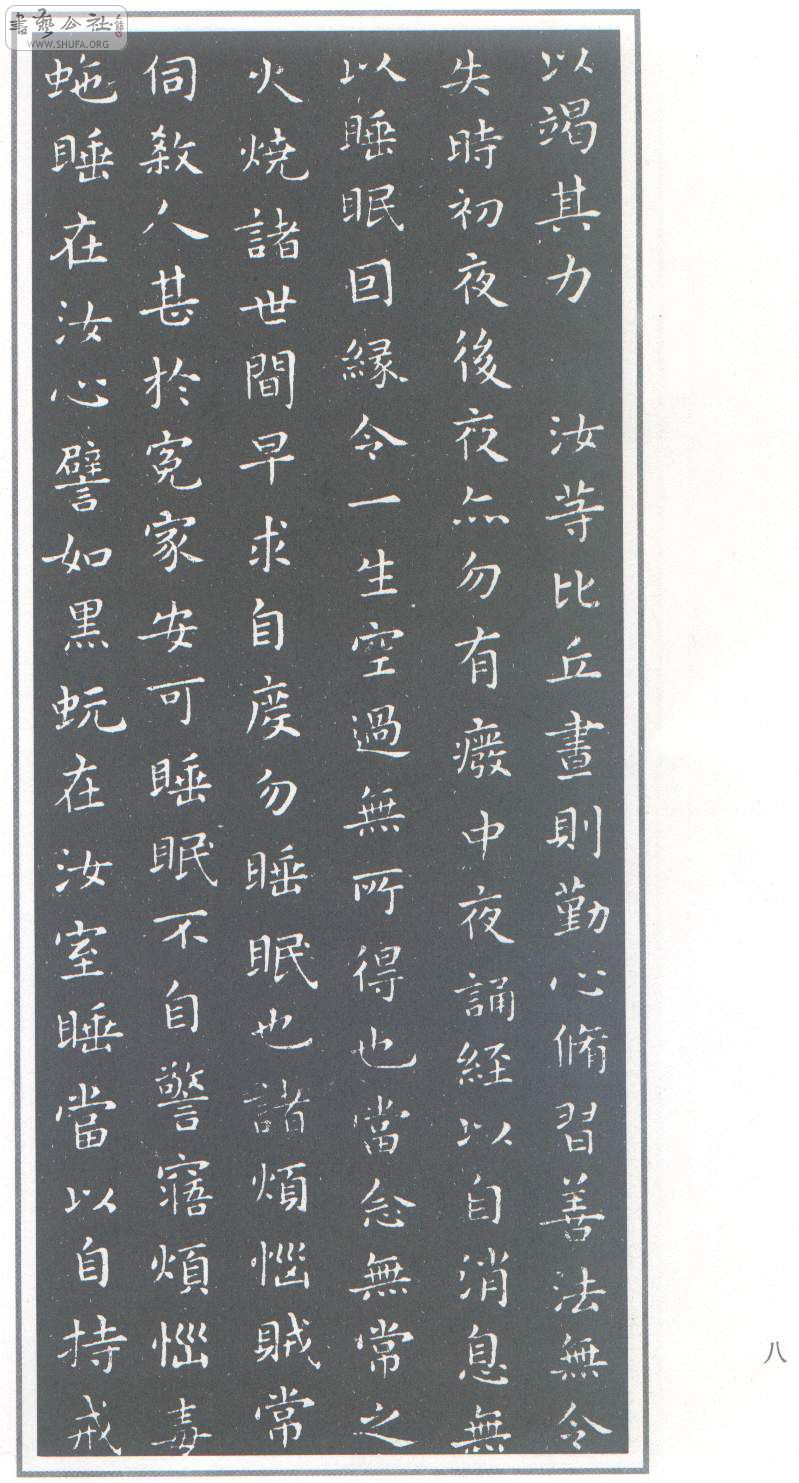 書藝公社
WWW.SHUFA.ORG
以竭其力　汝等比丘晝則勤心脩習善法無令
失時初夜後夜亦勿有癈中夜誦經以自消息無
以睡眠回緣令一生空過無所得也當念無常之
火燒諸世間早求自度勿睡眠也諸煩惱賊常
伺敎人甚於冤家安可睡眠不自警寤煩惱毒
虵睡在汝心譬如黑蚖在汝室睡當以自持戒
八